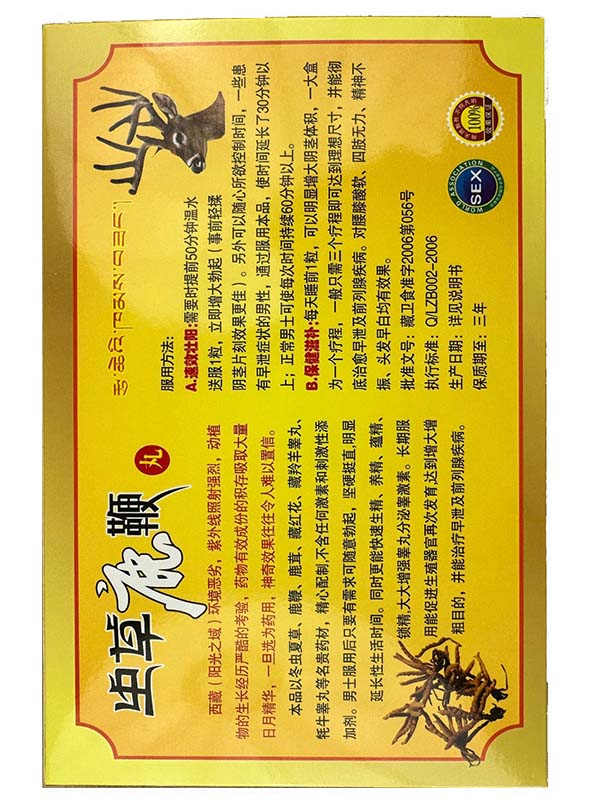 虫草鹿鞭丸
西藏（阳光之域）环境恶劣，紫外线照射强烈，动植
物的生长经历严酷的考验，药物有效成份的积存吸取大量
日月精华，一旦选为药用，神奇效果往往令人难以置信。
本品以冬虫夏草、鹿鞭、鹿茸、藏红花、藏羚羊睾丸、
牦牛睾丸等名贵药材，精心配制，不含任何激素和刺激性添
加剂。男士服用后只要有需求可随意勃起，坚硬挺直，明显
延长性生活时间。同时更能快速生精、养精、蕴精、
锁精，大大增强睾丸分泌睾激素。长期服
用能促进生殖器官再次发育达到增大增
粗目的，并能治疗早泄及前列腺疾病。
服用方法：
A.速效壮阳：需要时提前50分钟温水
送服1粒，立即增大勃起（事前轻揉
阴茎片刻效果更佳）。另外可以随心所欲控制时间，一些患
有早泄症状的男性，通过服用本品，使时间延长了30分钟以
上；正常男士可使每次时间持续60分钟以上。
B.保健滋补：每天睡前1粒，可以明显增大阴茎体积，一大盒
为一个疗程，一般只需三个疗程即可达到理想尺寸，并能彻
底治愈早泄及前列腺疾病。对腰膝酸软、四肢无力、精神不
振、头发早白均有效果。
批准文号：藏卫食准字2006第056号
执行标准：Q/LZB002-2006
生产日期：详见说明书
保质期至：三年
WORLD ASSOCIATION
SEX
100%